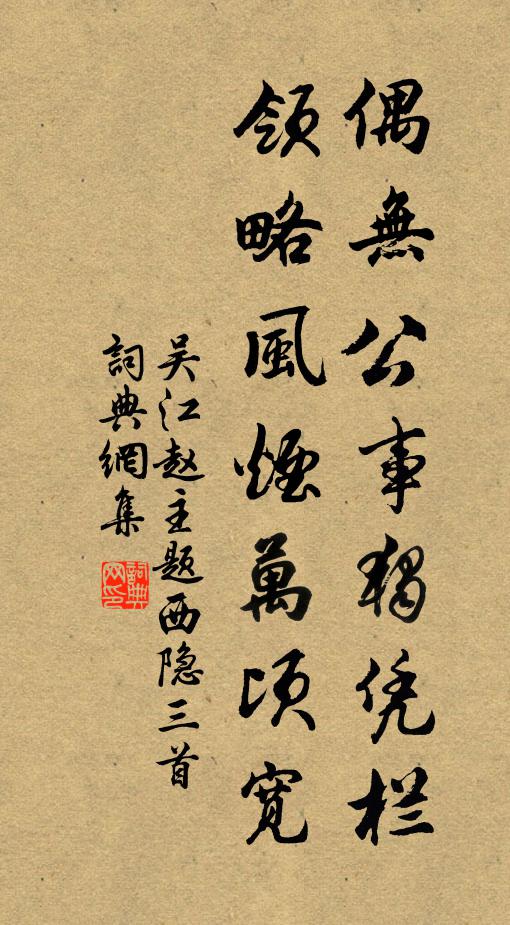 偶無公事獨凭栏
領略風煙萬頃寬
吴江赵主题西隐三首
詞典網集
詞典网印